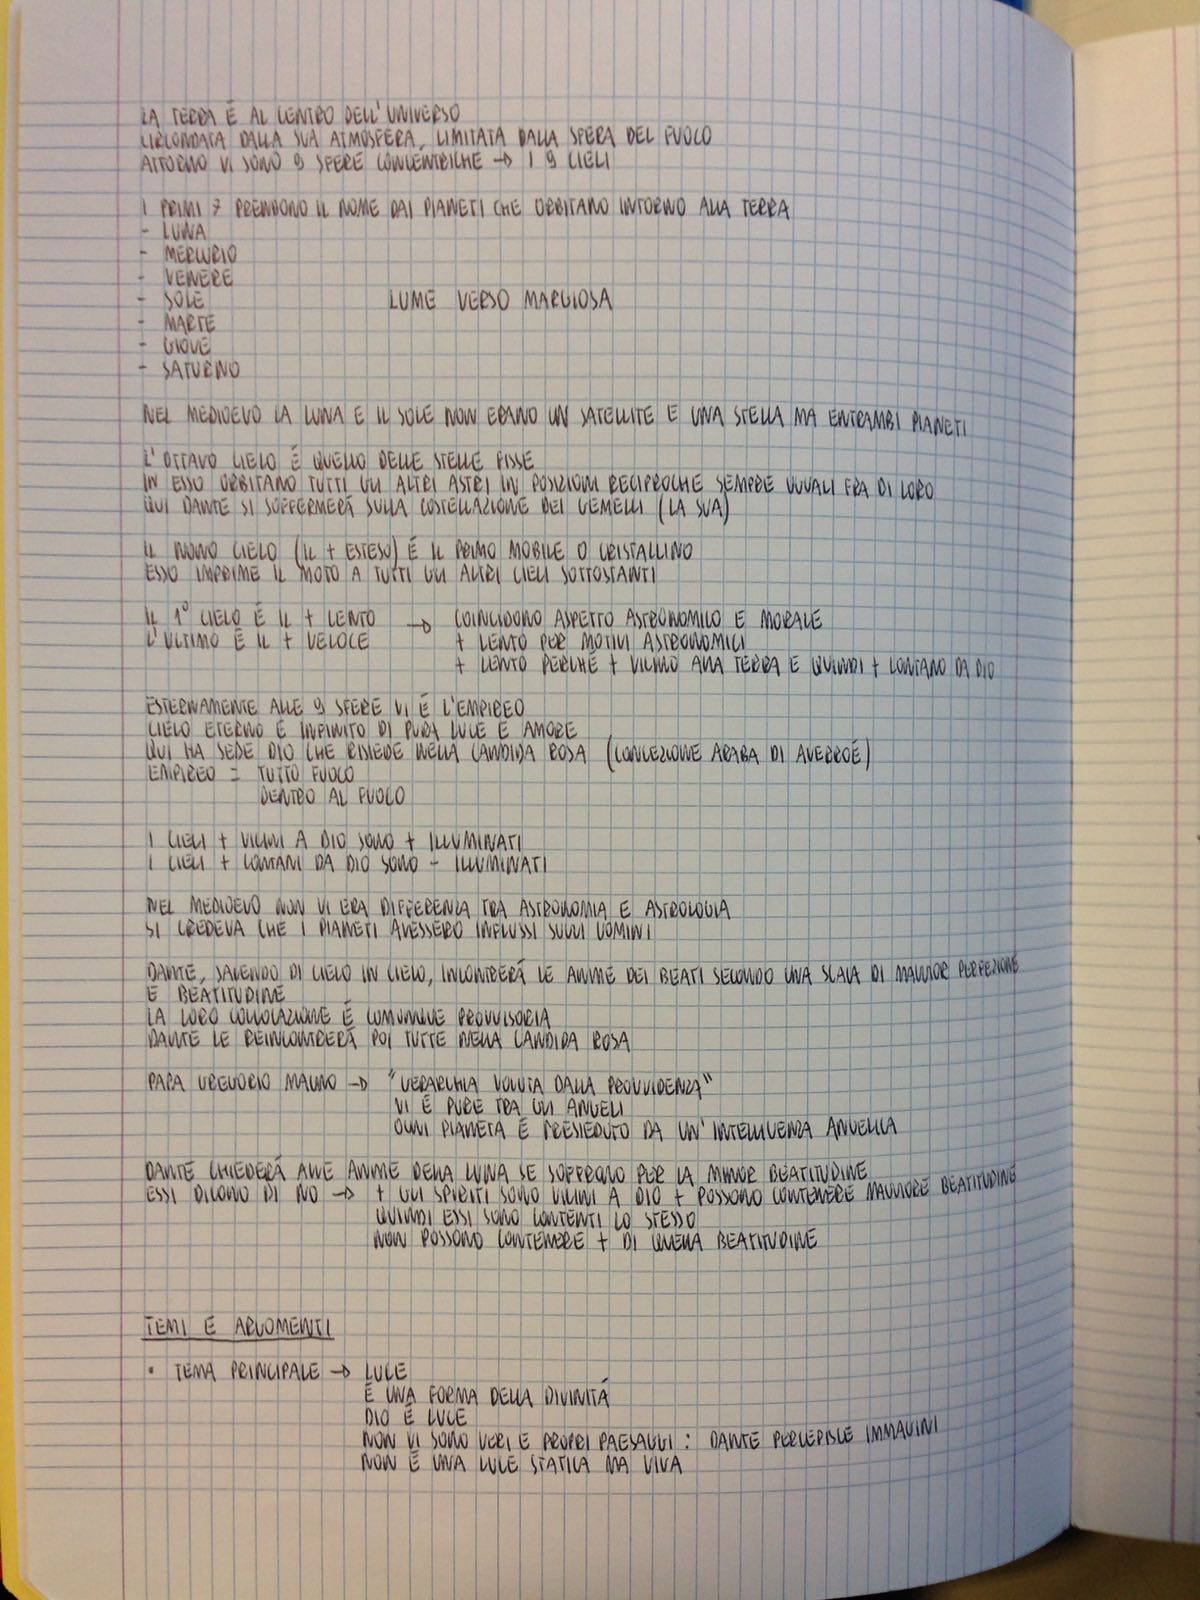 LA TERRA É AL CENTRO DELL'UNIVERSO
CIRCONDATA DALLA SUA ATMOSFERA, LIMITATA DALLA SFERA DEL FUOCO
ATTORNO VI SONO 9 SFERE CONCENTRICHE → I 9 CIELI
I PRIMI 7 PRENDONO IL NOME DAI PIANETI CHE ORBITANO INTORNO ALLA TERRA
- LUNA
- MERCURIO
- VENERE
- SOLE LUME VERSO MARGIOSA
- MARTE
- GIOVE
- SATURNO
NEL MEDIOEVO LA LUNA E IL SOLE NON ERANO UN SATELLITE E UNA STELLA MA ENTRAMBI PIANETI
L'OTTAVO CIELO É QUELLO DELLE STELLE FISSE
IN ESSO ORBITANO TUTTI GLI ALTRI ASTRI IN POSIZIONI RECIPROCHE SEMPRE UGUALI FRA DI LORO
QUI DANTE SI SOFFERMERÁ SULLA COSTELLAZIONE DEI GEMELLI (LA SUA)
IL NONO CIELO (IL + ESTESO) É IL PRIMO MOBILE O CRISTALLINO
ESSO IMPRIME IL MOTO A TUTTI GLI ALTRI CIELI SOTTOSTANTI
IL 1° CIELO É IL + LENTO → COINCIDONO ASPETTO ASTRONOMICO E MORALE
L'ULTIMO É IL + VELOCE + LENTO PER MOTIVI ASTRONOMICI
+ LENTO PERCHÉ + VICINO ALLA TERRA E QUINDI + LONTANO DA DIO
ESTERNAMENTE ALLE 9 SFERE VI É L'EMPIREO
CIELO ETERNO E INFINITO DI PURA LUCE E AMORE
QUI HA SEDE DIO CHE RISIEDE NELLA CANDIDA ROSA (CONCEZIONE ARABA DI AVERROÉ)
EMPIREO = TUTTO FUOCO
DENTRO AL FUOCO
I CIELI + VICINI A DIO SONO + ILLUMINATI
I CIELI + LONTANI DA DIO SONO - ILLUMINATI
NEL MEDIOEVO NON VI ERA DIFFERENZA TRA ASTRONOMIA E ASTROLOGIA
SI CREDEVA CHE I PIANETI AVESSERO INFLUSSI SUGLI UOMINI
DANTE, SALENDO DI CIELO IN CIELO, INCONTRERÁ LE ANIME DEI BEATI SECONDO UNA SCALA DI MAGGIOR PERFEZIONE
E BEATITUDINE
LA LORO COLLOCAZIONE É COMUNQUE PROVVISORIA
DANTE LE REINCONTRERÁ POI TUTTE NELLA CANDIDA ROSA
PAPA GREGORIO MAGNO → "GERARCHIA VOLUTA DALLA PROVVIDENZA"
VI É PURE TRA GLI ANGELI
OGNI PIANETA É PRESIEDUTO DA UN'INTELLIGENZA ANGELICA
DANTE CHIEDERÁ ALLE ANIME DELLA LUNA SE SOFFRONO PER LA MINOR BEATITUDINE
ESSI DICONO DI NO → + GLI SPIRITI SONO VICINI A DIO + POSSONO CONTENERE MAGGIORE BEATITUDINE
QUINDI ESSI SONO CONTENTI LO STESSO
NON POSSONO CONTENERE + DI QUELLA BEATITUDINE
TEMI E ARGOMENTI
• TEMA PRINCIPALE → LUCE
É UNA FORMA DELLA DIVINITÁ
DIO É LUCE
NON VI SONO VERI E PROPRI PAESAGGI : DANTE PERCEPISCE IMMAGINI
NON É UNA LUCE STATICA MA VIVA